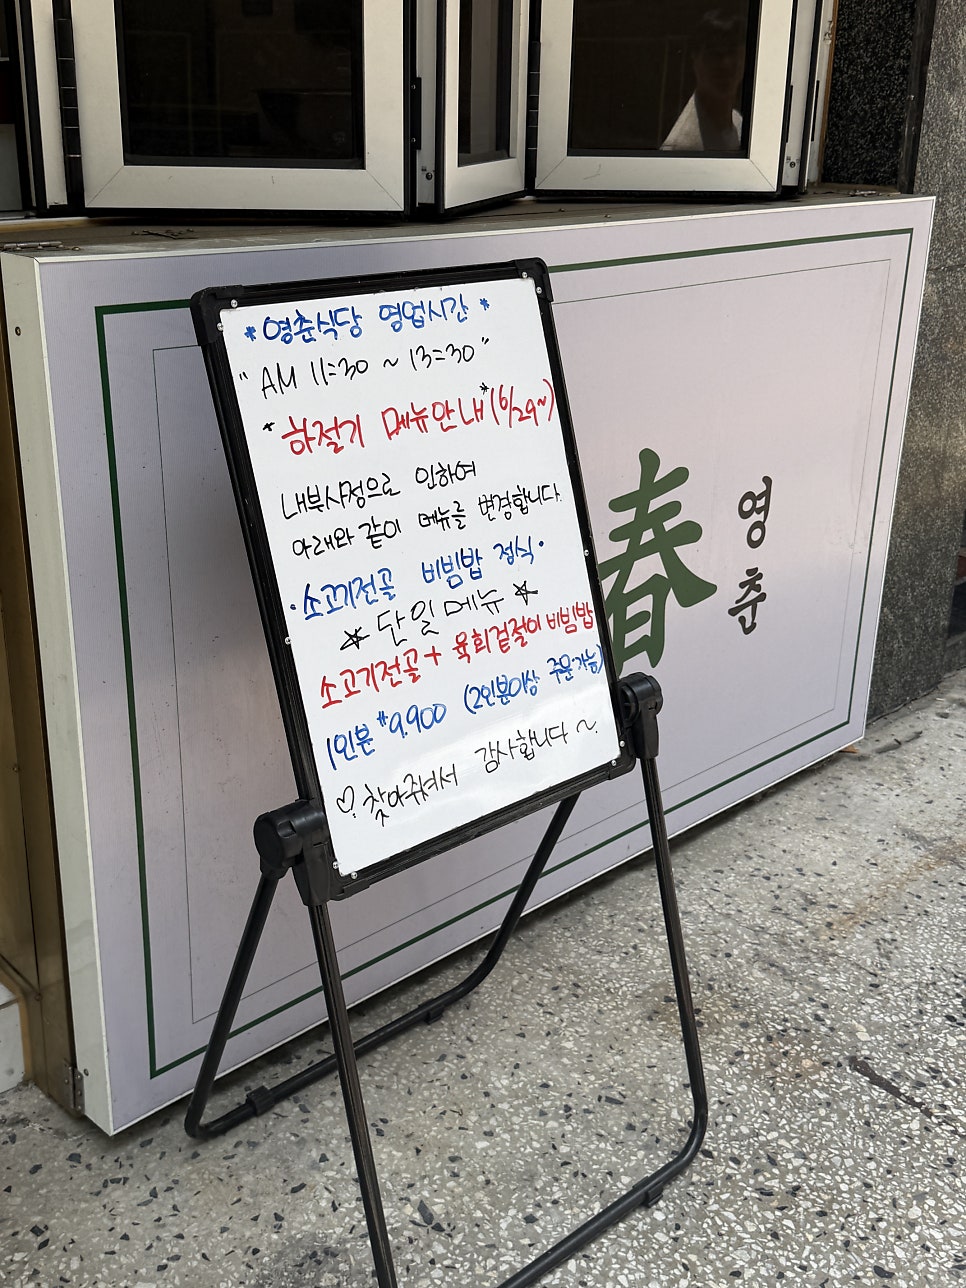 *영춘식당 영업시간*
"AM 11:30 ~ 13:30"
*하절기 메뉴안내*(6/29~)
내부사정으로 인하여
아래와 같이 메뉴를 변경합니다.
·소고기전골 비빔밥 정식·
☆단일메뉴☆
소고기전골+육회겉절이비빔밥
1인분 ₩9.900 (2인분이상 주문가능)
♡찾아줘서 감사합니다~.
春
영춘